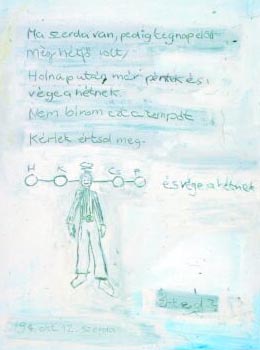 Ma szerda van, pedig tegnapelőtt
Még hétfő volt,
Holnapután már péntek és
vége a hétnek.
Nem bírom ezt a tempót
Kérlek értsd meg.
H K Cs P
és vége a hétnek
Érted?
1994. okt. 12. szerda